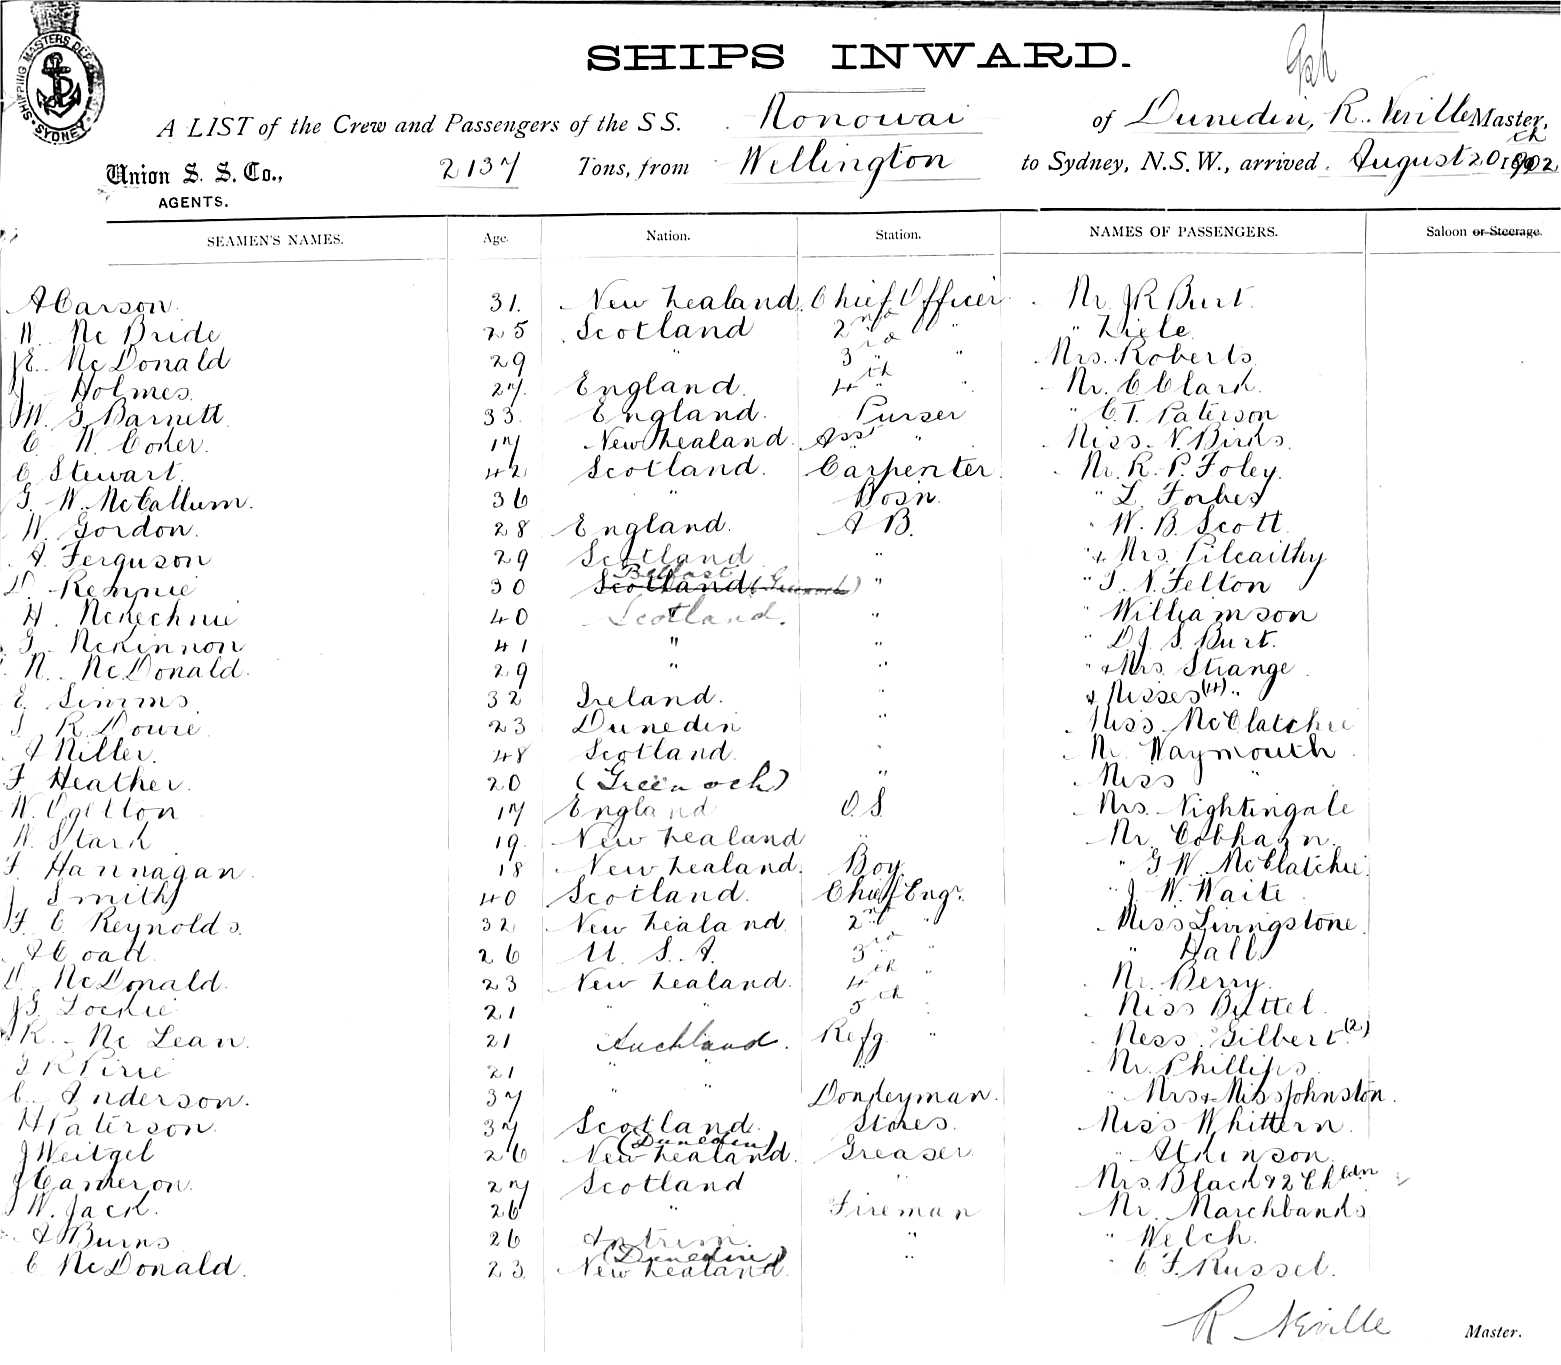 SHIPPING MASTERS DEP
SYDNEY
SHIPS INWARD.
A LIST of the Crew and Passengers of the S S. Monowai of Dunedin, R. Neville Master,
Union S. S. Co., 2137 Tons, from Wellington to Sydney, N.S.W., arrived August 20th 1902
AGENTS.
SEAMEN'S NAMES. Age. Nation. Station. NAMES OF PASSENGERS. Saloon or Steerage.
A Carson. 31. New Zealand. Chief Officer Mr J R Burt.
N. McBride 25 Scotland 2nd " " Ziele
J E. McDonald 29 " 3rd " " Mrs. Roberts
J Holmes. 27. England. 4th " " Mr. C Clark.
M. G Barnett. 33. England. Purser " C. T. Paterson
C. W. Coner. 17 New Zealand. Asst " Miss. V Birks.
C Stewart. 42 Scotland. Carpenter. Mr. R. P. Foley.
G. W. McCallum. 36 " Bosn. " L Forbes
W. Gordon. 28 England. A B. " W. B. Scott
A. Ferguson 29 Scotland " " & Mrs. Pilcaithy
D. Rennie 30 Belfast Scotland (Greenock) " " T. N. Felton
H. McKechnie 40 Scotland. " " Williamson
G. McKinnon 41 " " " D J. S. Burt.
N. McDonald. 29 " " " & Mrs. Strange
E. Simms 32 Ireland. " & Misses (4) "
J R. Dowie 23 Dunedin " Miss. McClatchie
A Miller. 48 Scotland. " Mr. Waymouth
F Heather. 20 (Greenock) " Miss "
W. 17 England O. S. Mrs. Nightingale
W. Stark 19. New Zealand " Mr. Cobham.
F. Hannagan. 18 New Zealand. Boy. " G W. McClatchie.
J Smith 40 Scotland. Chief Engr. " J. W. Waite
F. C Reynolds. 32 New Zealand 2nd " Miss Livingstone.
A Coall. 26 U. S. A. 3rd " " Hall
D. McDonald. 23 New Zealand. 4th " Mr. Berry.
J G. Lockie 21 " " 5th " Miss Buttel.
R. McLean. 21 Auckland. Refg. " Miss. Gilbert. (2)
J R Pirie 21 " " Mr. Phillips.
C. Anderson. 37 " " Donkeyman. Mrs & Miss Johnston.
H Paterson. 37 Scotland. Stores. Miss Whittern.
J Weitzel 26 (Dunedin) New Zealand. Greaser " Atkinson.
J Cameron. 27 Scotland " Mrs. Black & 2 Chldn
W. Jack. 26 " Fireman Mr. Marchbanks
A Burns 26 Antrim. " " Welch.
C. McDonald. 23. (Dunedin) New Zealand. " " C. F. Russel.
R Neville Master.